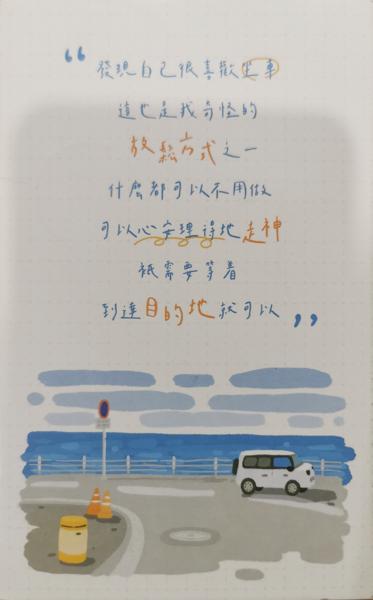 “
發現自己很喜歡坐車
這也是我奇怪的
放鬆方式之一
什麼都可以不用做
可以心安理得地走神
祇需要等著
到達目的地就可以
”